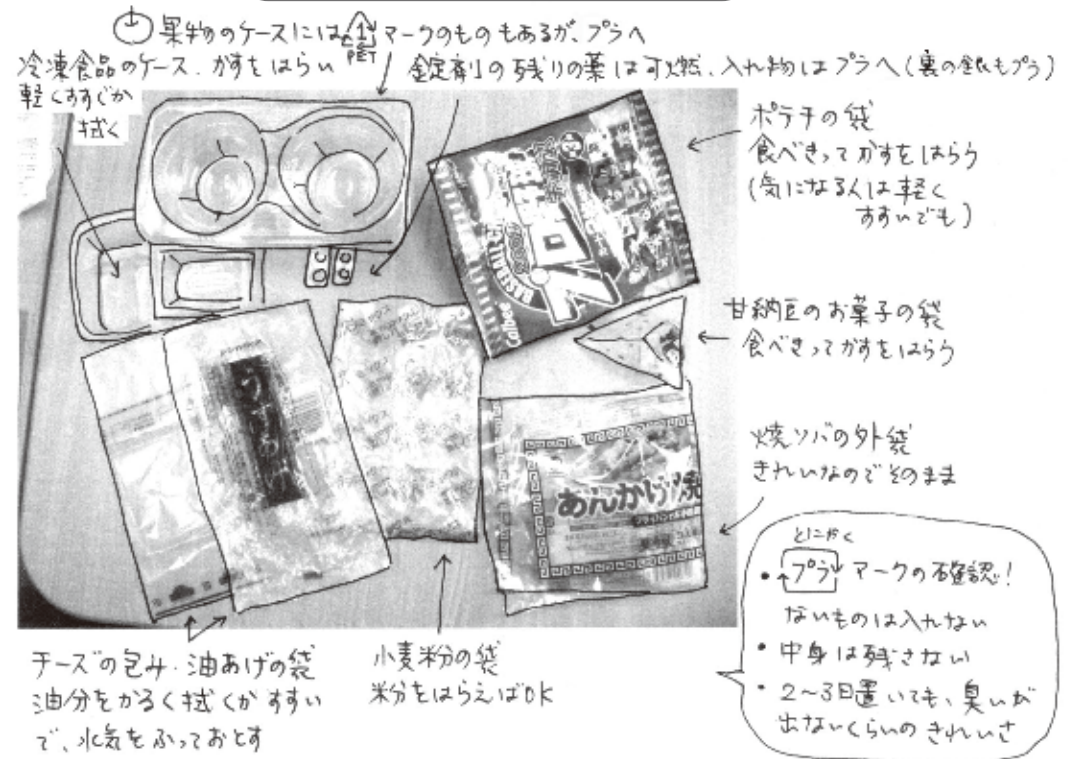 果物のケースには
1
PET
マークのものもあるが、プラへ
冷凍食品のケース、かすをはらい
軽くすすぐか
拭く
錠剤の残りの薬は可燃、入れ物はプラへ(裏の銀もプラ)
ポテチの袋
食べきってかすをはらう
(気になる人は軽く
すすいでも)
Calbee
BASEBALL
甘納豆のお菓子の袋
食べきってかすをはらう
うすあげ
焼ソバの外袋
きれいなのでそのまま
あんかけ焼
チーズの包み・油あげの袋
油分をかるく拭くかすすい
で、水気をふっておとす
小麦粉の袋
粉をはらえばOK
とにかく
・プラ マークの確認!
ないものは入れない
・中身は残さない
・2〜3日置いても、臭いが
出ないくらいのきれいさ